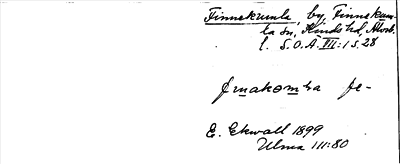 Finnekumla, by, Finnekum-
la sn, Kinds hd, Älvsb.
l. S.O.Ä VII:1 s. 28
fe-
E. Ekwall 1899
Ulma 111:80